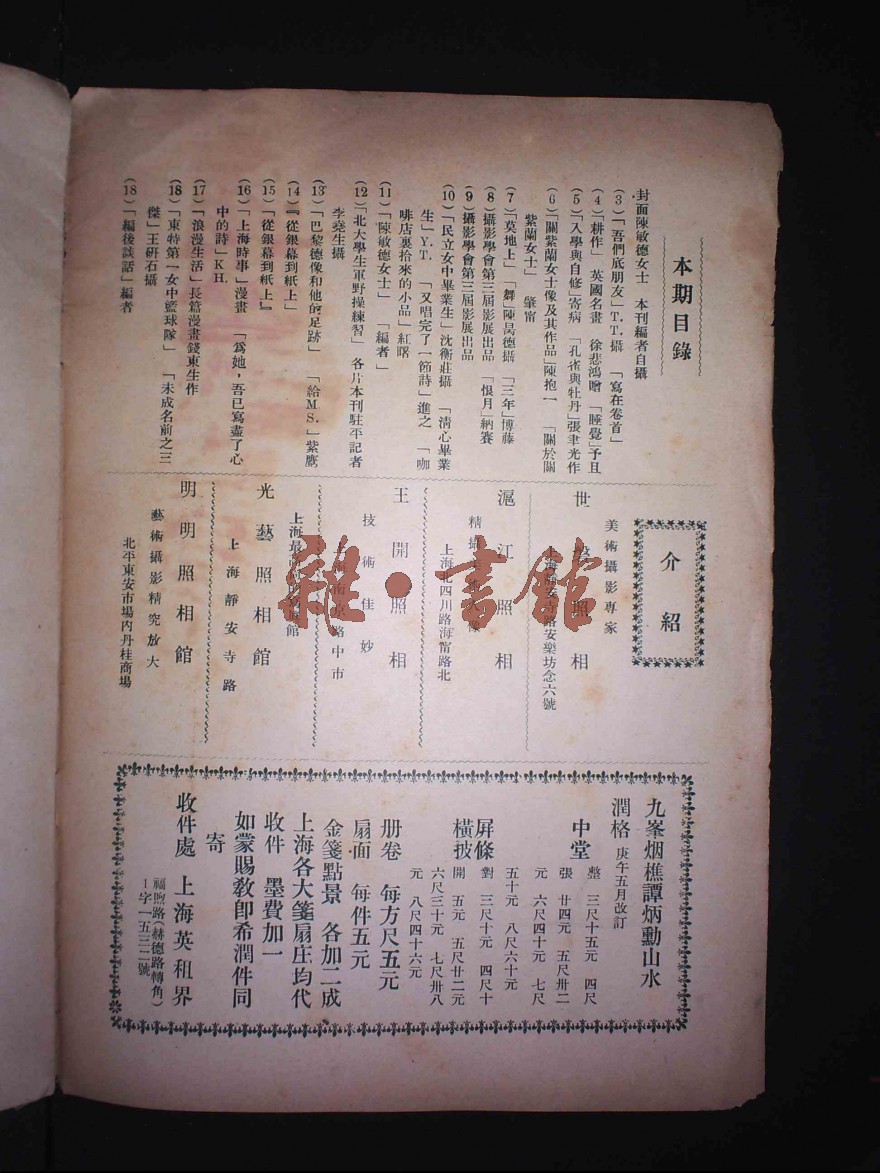 本期目錄
封面陳敏德女士　本刊編者自攝
(3)「吾們底朋友」T.T.攝　「寫在卷首」
(4)「耕作」　英國名畫　徐悲鴻贈　「睡覺」予且
(5)「入學與自修」寄病　「孔雀與牡丹」張聿光作
(6)「關紫蘭女士像及其作品」陳抱一　「關於關
紫蘭女士」　肇甯
(7)「莫地上」　「舞」陳昺德攝　「三年」博藤
(8)攝影學會第三屆影展出品　「恨月」納賽
(9)攝影學會第三屆影展出品
(10)「民立女中畢業生」沈衡莊攝　「清心畢業
生」Y.T.　「又唱完了一節詩」進之　「咖
啡店裏拾來的小品」紅曙
(11)「陳敏德女士」　「編者」
(12)「北大學生軍野操練習」　各片本刊駐平記者
李堯生攝
(13)「巴黎德像和他的足跡」　「給M.S.」紫鷹
(14)『從銀幕到紙上』
(15)『從銀幕到紙上』
(16)「上海時事」漫畫　「爲她，吾已寫盡了心
中的詩」K.H.
(17)「浪漫生活」長篇漫畫錢東生作
(18)「東特第一女中籃球隊」　「未成名前之三
傑」王硏石攝
(18)「編後談話」編者
介紹
美術攝影專家
世　照相
上海靜安寺路安樂坊念六號
滬江照相
精攝
上海北四川路海甯路北
王開照相
技術佳妙
上海南京路中市
上海最　館
光藝照相館
上海靜安寺路
明明照相館
藝術攝影精究放大
北平東安市場內丹桂商場
九峯烟樵譚炳勳山水
潤格　庚午五月改訂
中堂　整　三尺十五元　四尺
張　廿四元　五尺卅二
元　六尺四十元　七尺
五十元　八尺六十元
屛條　對　三尺十元　四尺十
橫披　開　五元　五尺廿二元
六尺三十元　七尺卅八
元　八尺四十六元
册卷　每方尺五元
扇面　每件五元
金箋點景　各加二成
上海各大箋扇庄均代
收件　墨費加一
如蒙賜敎卽希潤件同
寄
收件處　上海英租界
福煦路(赫德路轉角)
1字一五三二號
雜·書館